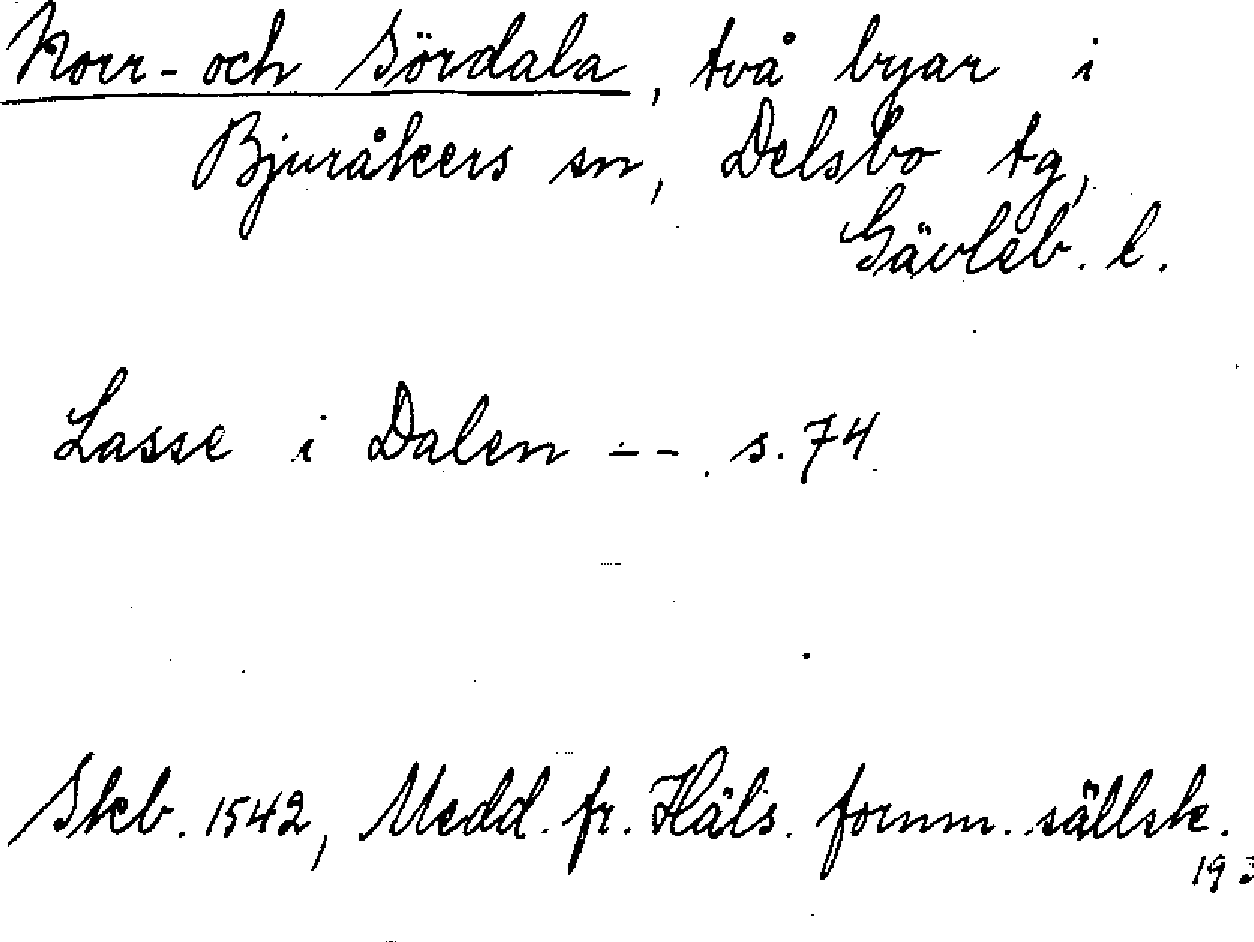 Norr- och Sördala, två byar i
Bjuråkers sn, Delsbo tg,
Gävleb. l.
Lasse i Dalen - - . s. 74.
Skb. 1542, Medd. fr. Häls. fornm. sällsk.
193